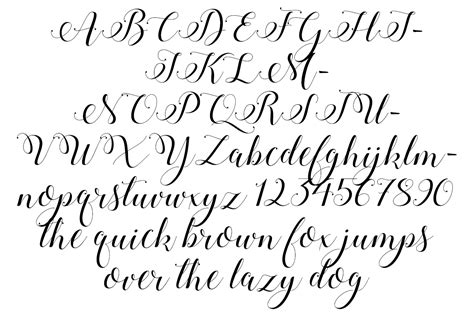 ABCDEFGHI-
JKLM-
NOPQRSTU-
VWXYZabcdefghijklm-
nopqrstuvwxyz 1234567890
the quick brown fox jumps
over the lazy dog